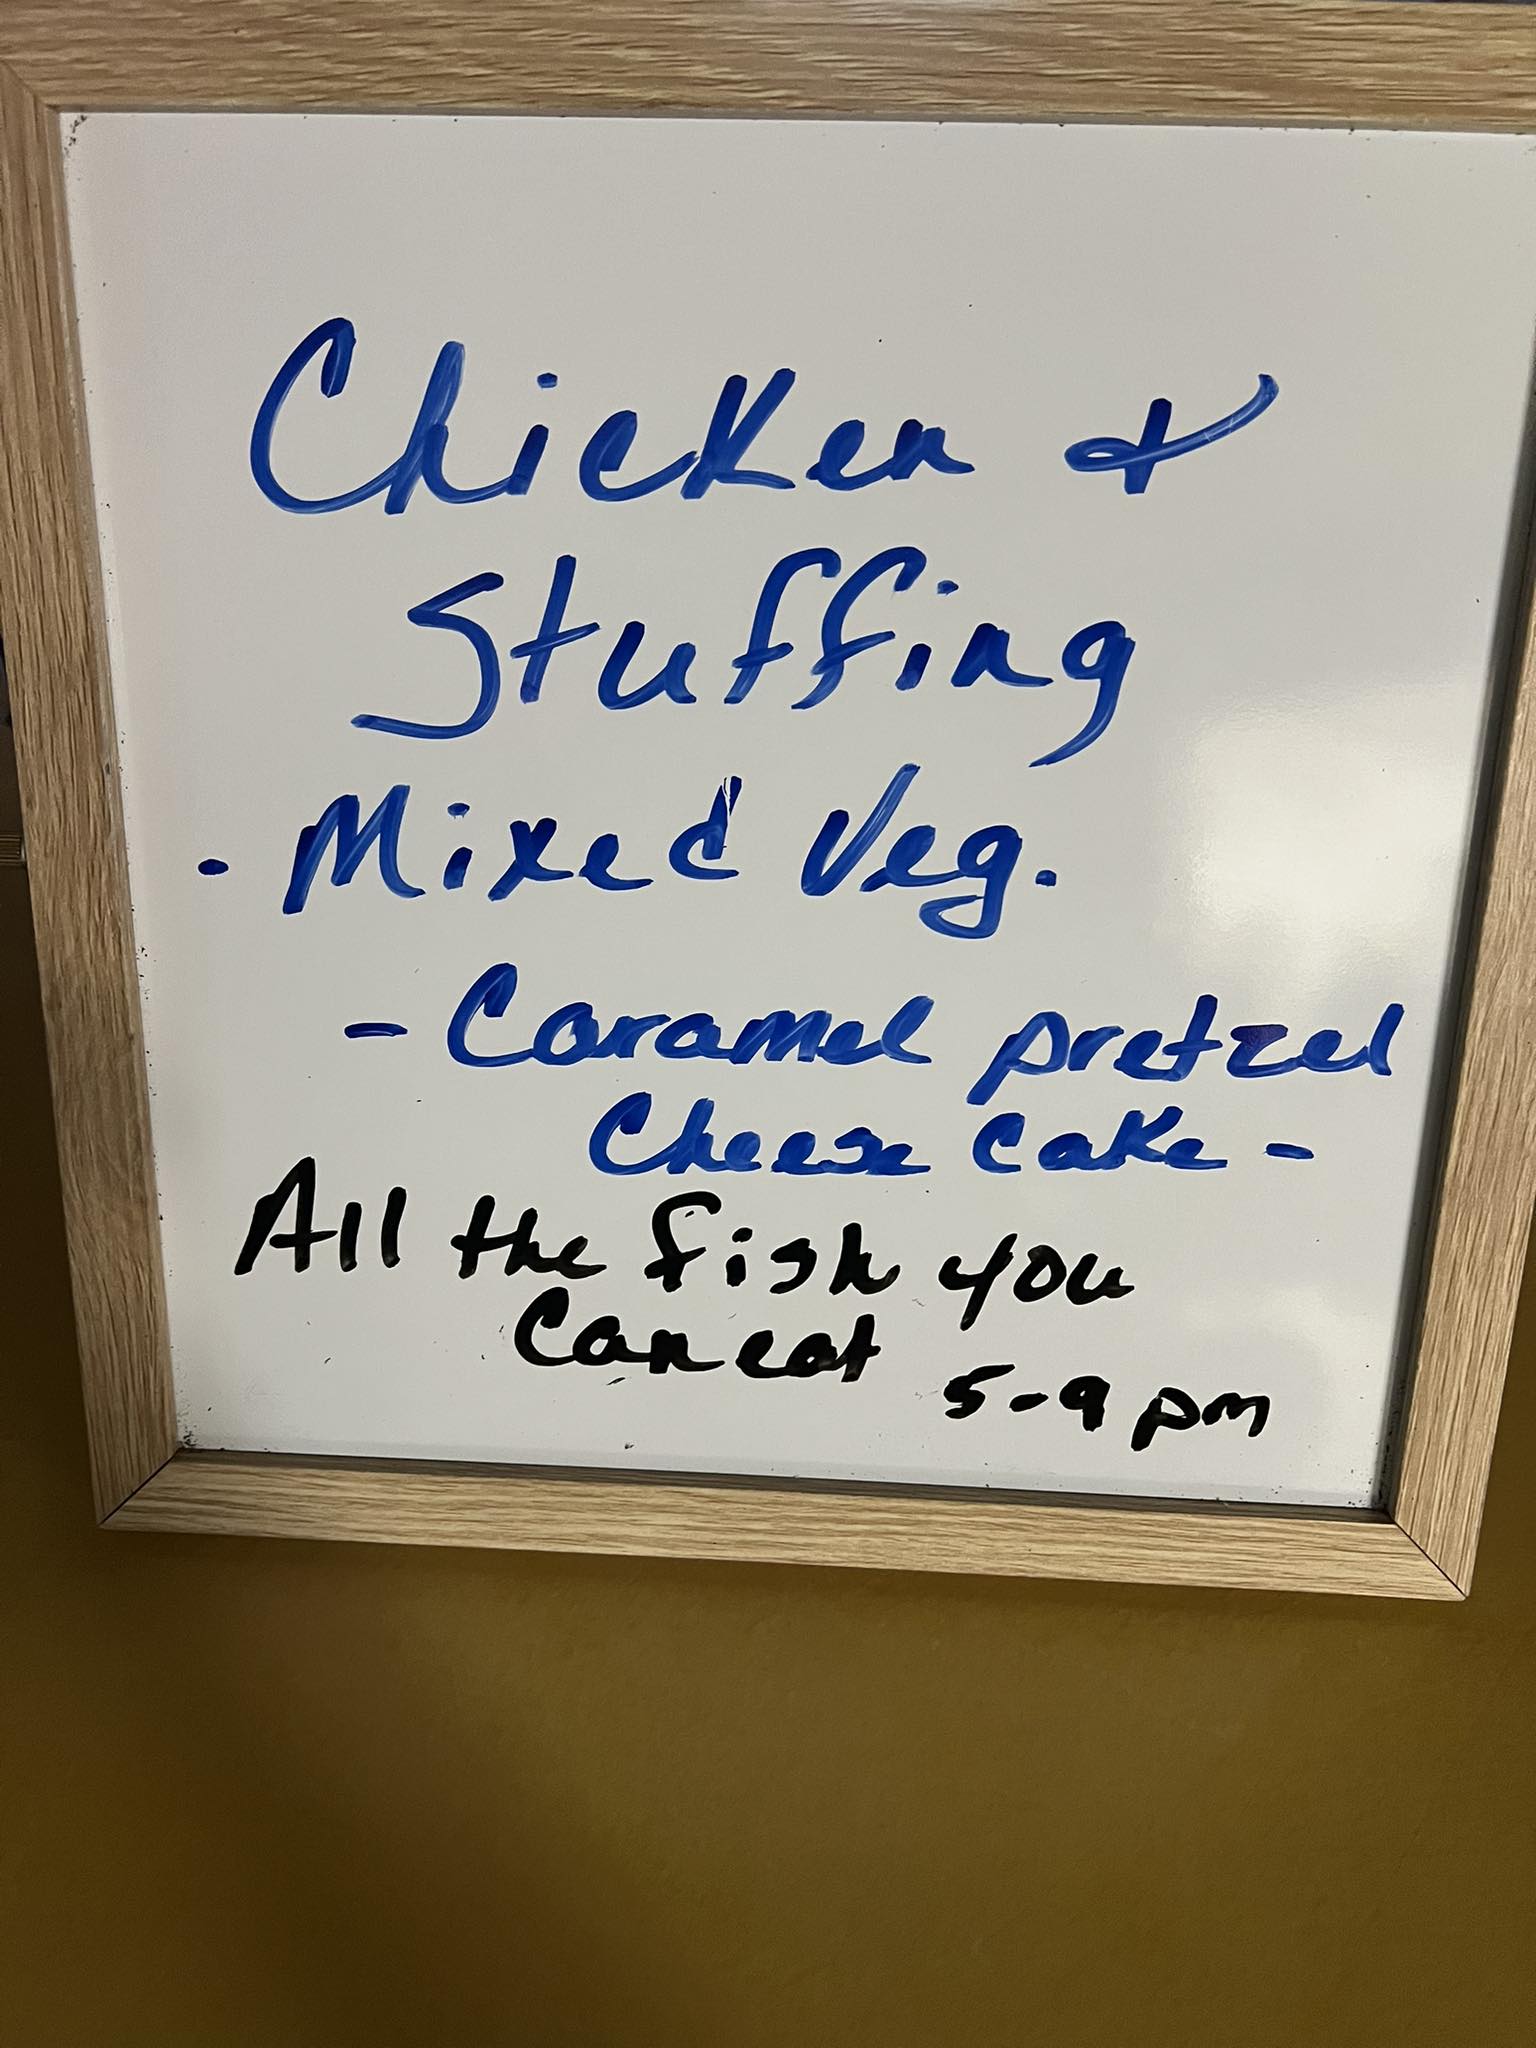 Chicken &
Stuffing
. Mixed Veg.
- Caramel pretzel
Cheese cake -
All the fish you
can eat 5-9 pm